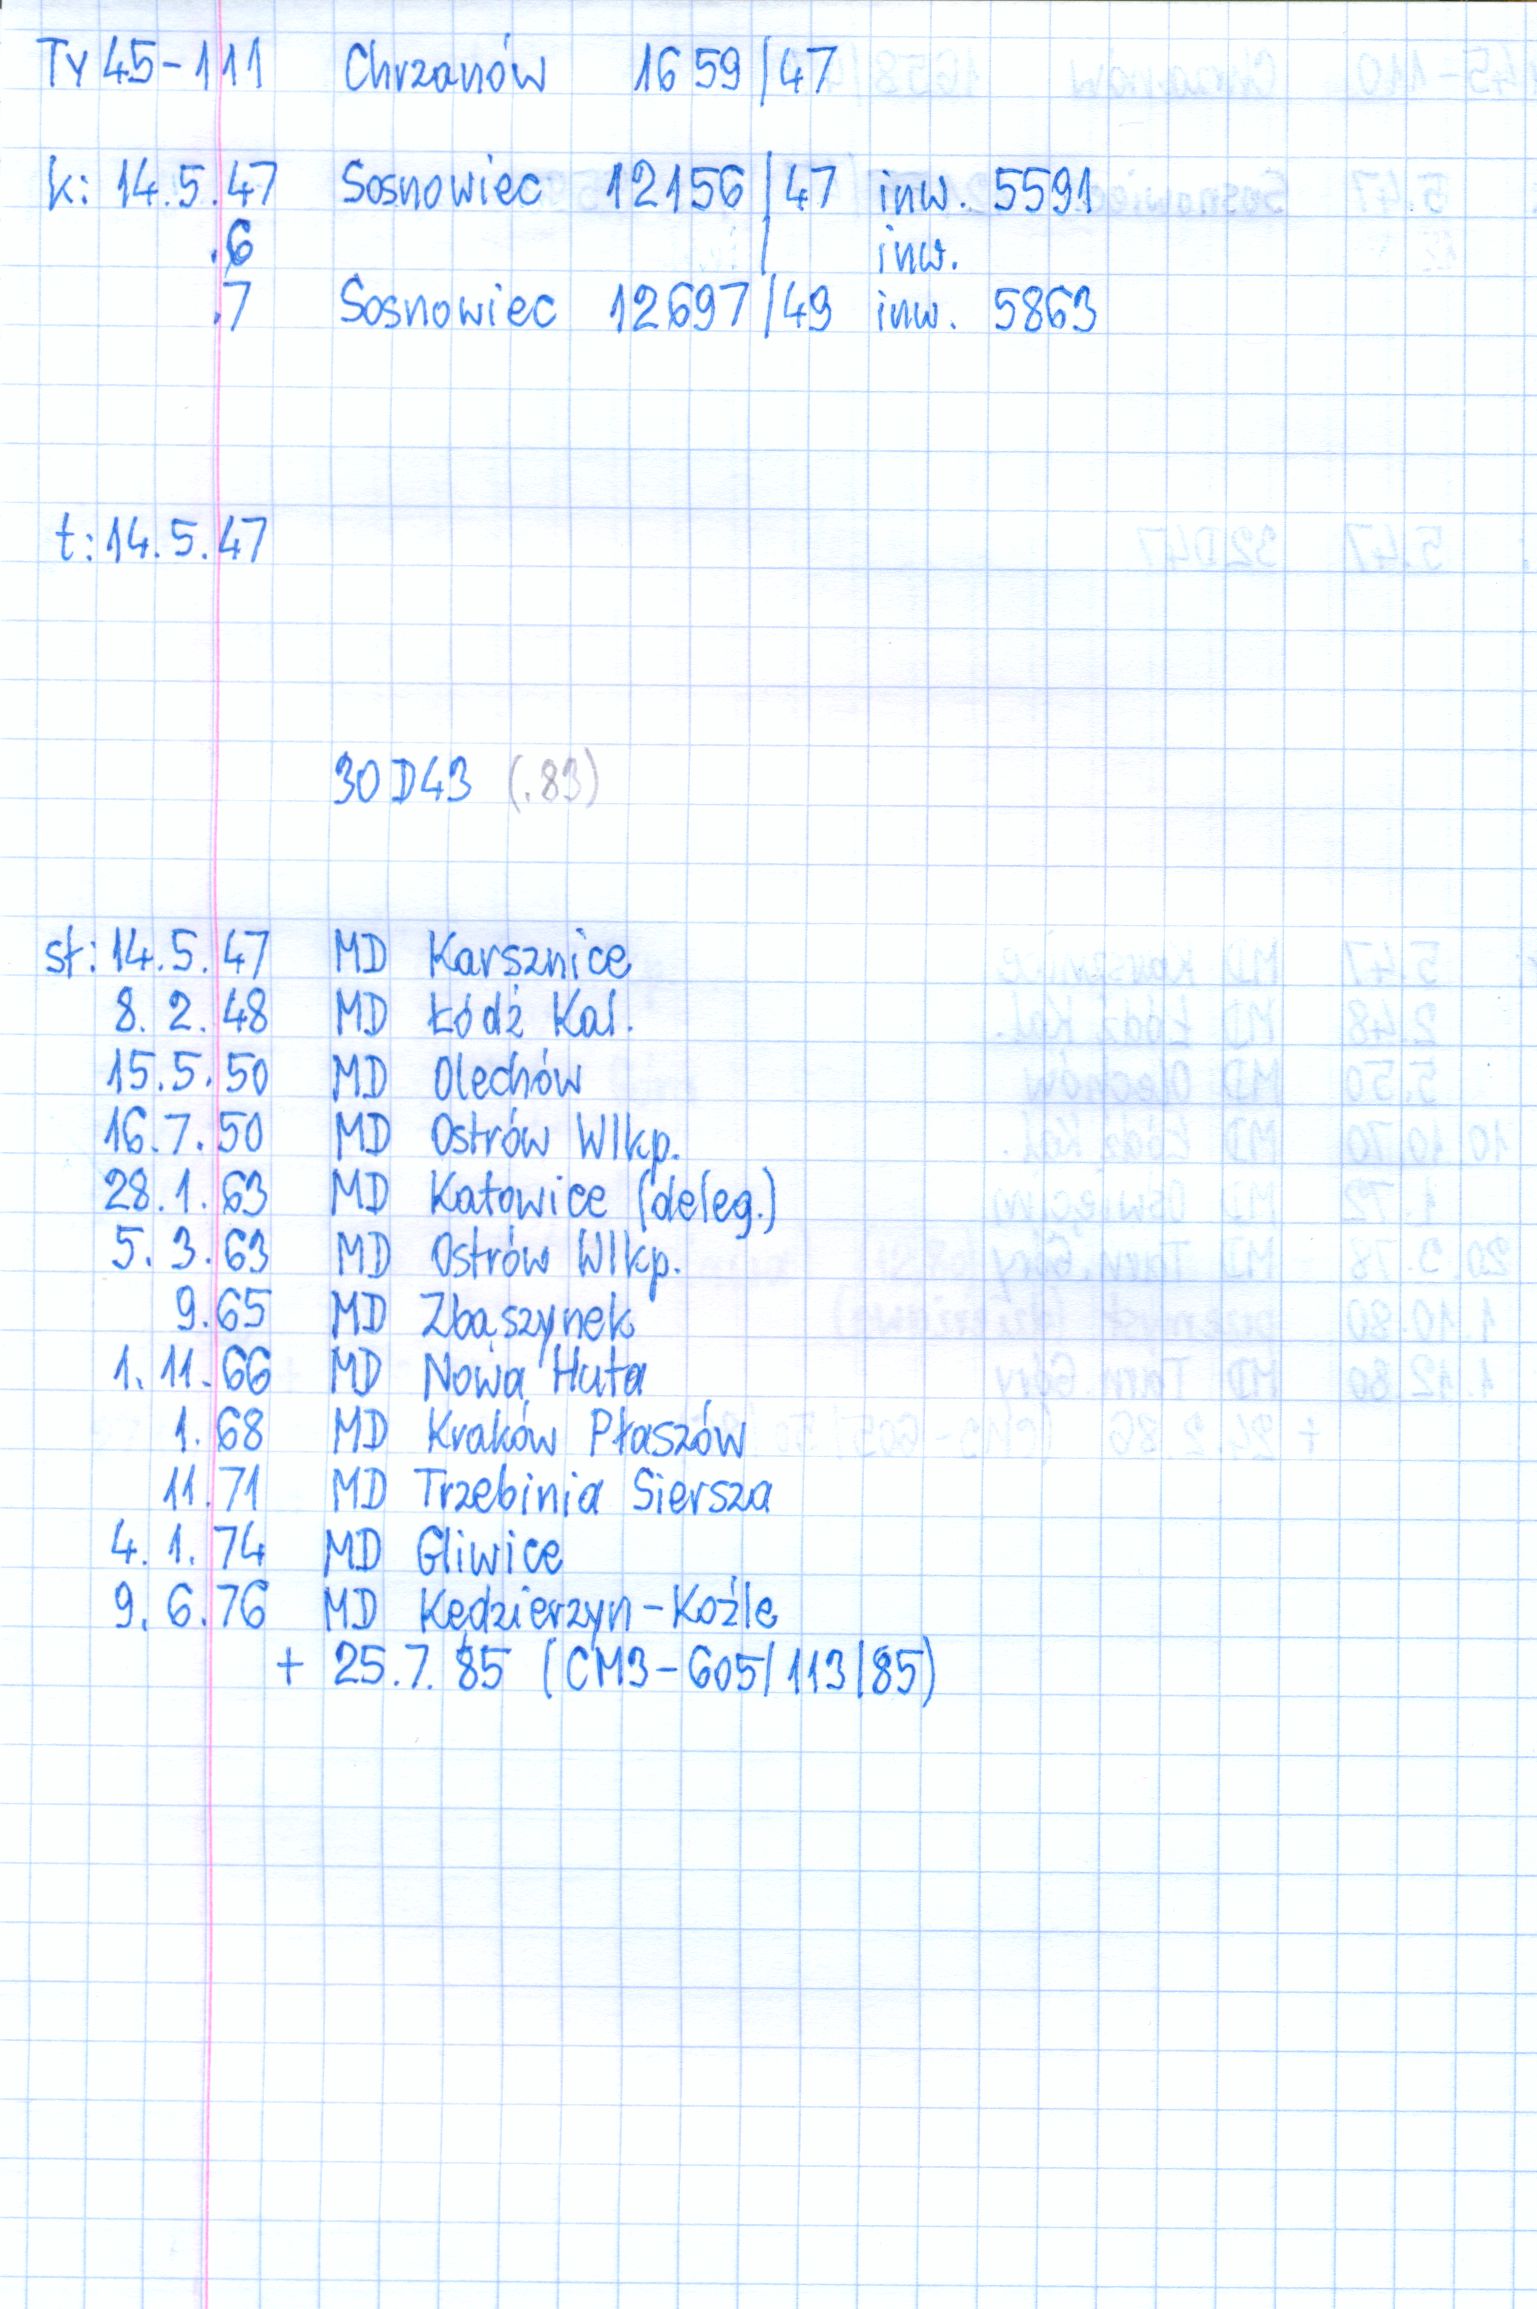 Ty45-111 Chrzanów 1659/47
k: 14.5.47 Sosnowiec 12156/47 inw. 5591
.6 / inw.
.7 Sosnowiec 12697/49 inw. 5863
t: 14.5.47
30D43 (.83)
st: 14.5.47 MD Karsznice
8.2.48 MD Łódź Kal.
15.5.50 MD Olechów
16.7.50 MD Ostrów Wlkp.
28.1.63 MD Katowice (deleg.)
5.3.63 MD Ostrów Wlkp.
9.65 MD Zbąszynek
1.11.66 MD Nowa Huta
1.68 MD Kraków Płaszów
11.71 MD Trzebinia Siersza
4.1.74 MD Gliwice
9.6.76 MD Kędzierzyn-Koźle
+ 25.7.85 (CM3-605/113/85)